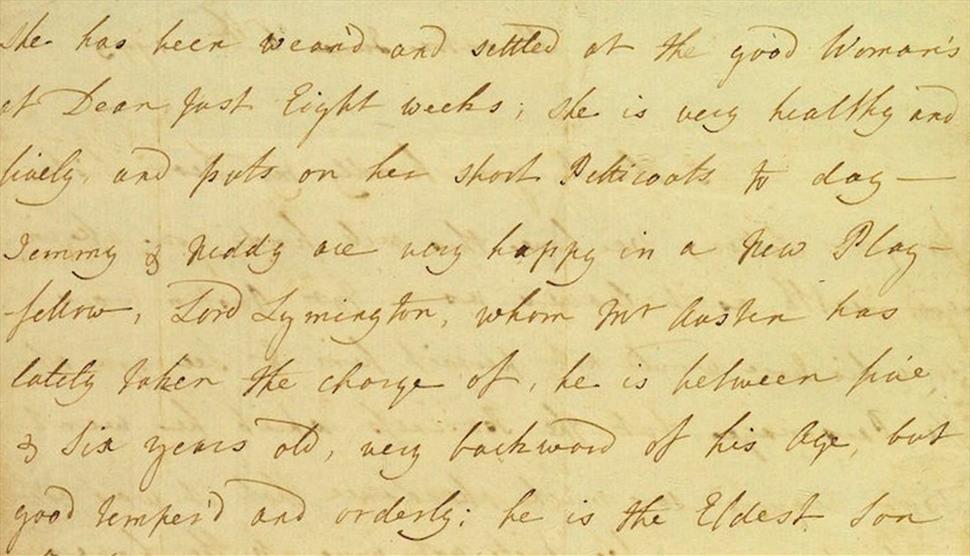 She has been wean'd and settled at the good Woman's
at Dean just Eight weeks; she is very healthy and
lively and puts on her short Petticoats to day —
Jemmy & Neddy are very happy in a new Play-
-fellow, Lord Lymington, whom Mr Austen has
lately taken the charge of, he is between five
& Six years old, very backward of his Age, but
good temper'd and orderly; he is the Eldest Son